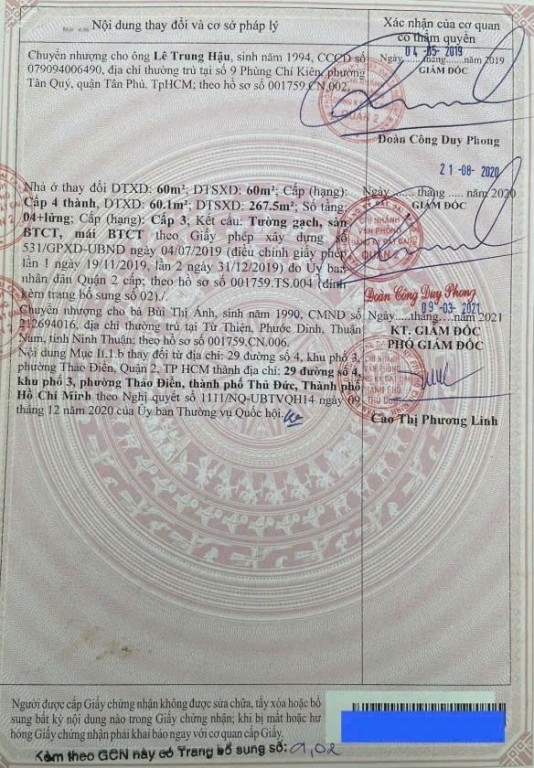 Nội dung thay đổi và cơ sở pháp lý
Xác nhận của cơ quan
có thẩm quyền
Chuyển nhượng cho ông Lê Trung Hậu, sinh năm 1994, CCCD số
079094006490, địa chỉ thường trú tại số 9 Phùng Chí Kiên, phường
Tân Quý, quận Tân Phú, TpHCM; theo hồ sơ số 001759.CN.002.
04 -05- 2019
Ngày......tháng.....năm 2019
GIÁM ĐỐC
QUẬN 2
Đoàn Công Duy Phong
21 -08- 2020
Nhà ở thay đổi DTXD: 60m²; DTSXD: 60m²; Cấp (hạng):
Cấp 4 thành, DTXD: 60.1m²; DTSXD: 267.5m²; Số tầng:
04+lửng; Cấp (hạng): Cấp 3, Kết cấu: Tường gạch, sàn
BTCT, mái BTCT theo Giấy phép xây dựng số
531/GPXD-UBND ngày 04/07/2019 (điều chỉnh giấy phép
lần 1 ngày 19/11/2019, lần 2 ngày 31/12/2019) do Ủy ban
nhân dân Quận 2 cấp; theo hồ sơ số 001759.TS.004 (đính
kèm trang bổ sung số 02)./.
Ngày ...... tháng ..... năm 2020
GIÁM ĐỐC
CHI NHÁNH
VĂN PHÒNG
ĐĂNG KÝ ĐẤT ĐAI
QUẬN 2
Đoàn Công Duy Phong
Chuyển nhượng cho bà Bùi Thị Ánh, sinh năm 1990, CMND số
212694016, địa chỉ thường trú tại Từ Thiện, Phước Dinh, Thuận
Nam, tỉnh Ninh Thuận; theo hồ sơ số 001759.CN.006.
Nội dung Mục II.1.b thay đổi từ địa chỉ: 29 đường số 4, khu phố 3,
phường Thảo Điền, Quận 2, TP HCM thành địa chỉ: 29 đường số 4,
khu phố 3, phường Thảo Điền, thành phố Thủ Đức, Thành phố
Hồ Chí Minh theo Nghị quyết số 1111/NQ-UBTVQH14 ngày 09
tháng 12 năm 2020 của Ủy ban Thường vụ Quốc hội.
09 -03- 2021
Ngày......tháng.....năm 2021
KT. GIÁM ĐỐC
PHÓ GIÁM ĐỐC
Cao Thị Phương Linh
Người được cấp Giấy chứng nhận không được sửa chữa, tẩy xóa hoặc bổ
sung bất kỳ nội dung nào trong Giấy chứng nhận; khi bị mất hoặc hư
hỏng Giấy chứng nhận phải khai báo ngay với cơ quan cấp Giấy.
Kèm theo GCN này có Trang bổ sung số: 01,02